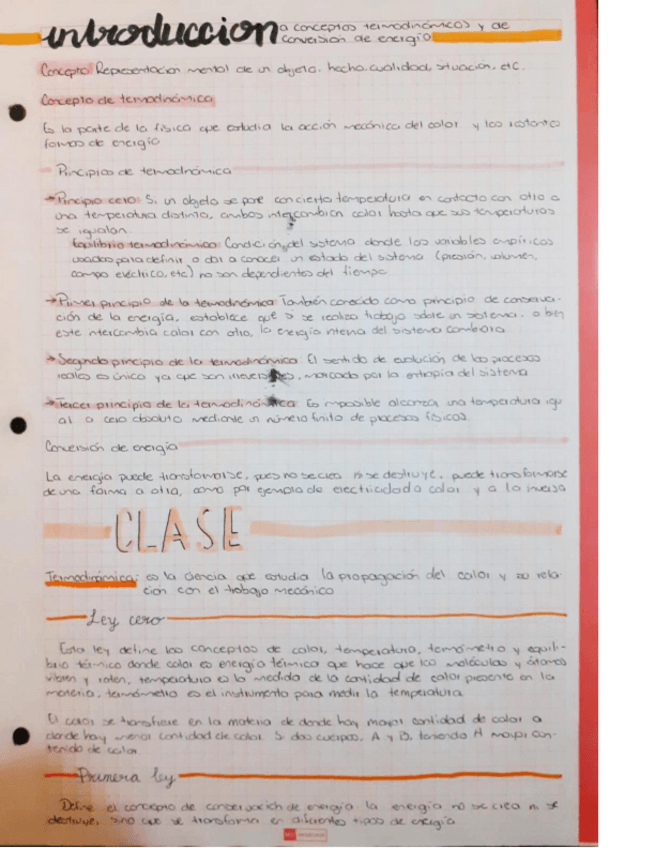 introduccion a conceptos termodinámicos y de
conversión de energía
Concepto: Representacion mental de un objeto, hecho, cualidad, situacion, etc.
Concepto de termodnámica
Es la parte de la física que estudia la acción mecánica del calor y las restantes
formas de energía
Principios de termodnámica
→Principio cero: Si un objeto se pone con cierta temperatura en contacto con otro a
una temperatura distinta, ambos intercambian calor hasta que sus temperaturas
se igualan.
Equilibrio termodinámico: Condición del sistema donde las variables empíricas
usadas para definir o dar a conocer un estado del sistema (presión, volumen,
campo eléctrico, etc) no son dependientes del tiempo.
→Primer principio de la termodnámica: También conocido como principio de conserva-
ción de la energía, establece que si se realiza trabajo sobre un sistema, o bien
este intercambia calor con otro, la energía interna del sistema cambiara
→Segundo principio de la termodnámica: El sentido de evolución de los procesos
reales es único ya que son irreversibles, marcado por la entropia del sistema
→Tercer principio de la termodinámica: Es imposible alcanzar una temperatura igu
al a cero absoluto mediante un número finito de procesos físicos.
Conversión de energía
La energía puede transformarse, pues no se crea ni se destruye, puede transformarse
de una forma a otra, como por ejemplo de electricidad a calor y a la inversa
CLASE
Termodinámica: es la ciencia que estudia la propagación del calor y su rela-
ción con el trabajo mecánico
Ley cero
Esta ley define los conceptos de calor, temperatura, termómetro y equili-
brio térmico donde calor es energía térmica que hace que las moléculas y átomos
vibren y roten, temperatura es la medida de la cantidad de calor presente en la
materia, termómetro es el instrumento para medir la temperatura
El calor se transfiere en la materia de donde hay mayor cantidad de calor a
donde hay menor cantidad de calor. Si dos cuerpos, A y B, teniendo A mayor con-
tenido de calor.
Primera ley
Define el concepto de conservación de energía: la energía no se crea ni se
destruye, sino que se transforma en diferentes tipos de energía